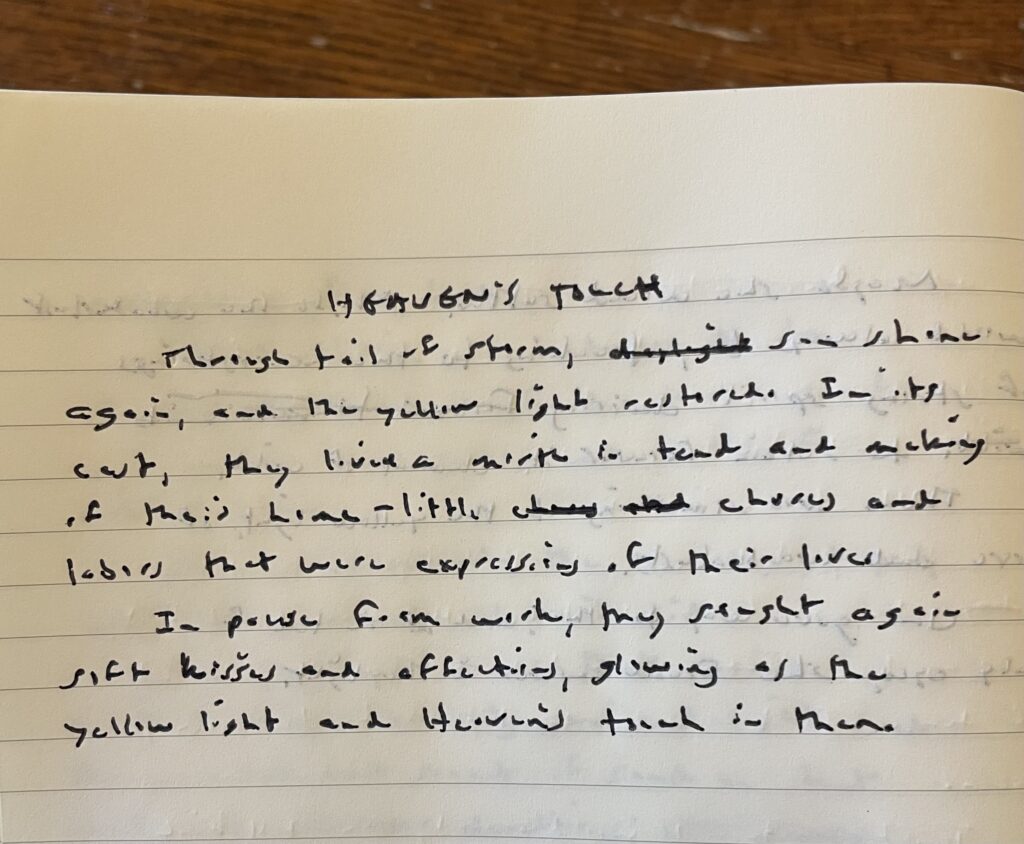 HEAVEN'S TOUCH
Through tail of storm, sun shone
again, and the yellow light restored. In its
cast, they lived a mirth in tend and making
of their home - little chores and
labors that were expressing of their love.
In pause from work, they sought again
soft kisses and affections, glowing as the
yellow light and Heaven's touch in them.